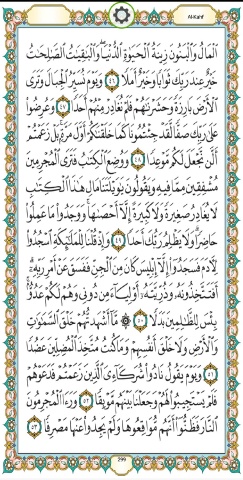 Al-Kahf
ٱلْمَالُ وَٱلْبَنُونَ زِينَةُ ٱلْحَيَوٰةِ ٱلدُّنْيَا ۖ وَٱلْبَٰقِيَٰتُ ٱلصَّٰلِحَٰتُ
خَيْرٌ عِندَ رَبِّكَ ثَوَابًا وَخَيْرٌ أَمَلًا ٤٦ وَيَوْمَ نُسَيِّرُ ٱلْجِبَالَ وَتَرَى
ٱلْأَرْضَ بَارِزَةً وَحَشَرْنَٰهُمْ فَلَمْ نُغَادِرْ مِنْهُمْ أَحَدًا ٤٧ وَعُرِضُوا۟
عَلَىٰ رَبِّكَ صَفًّا لَّقَدْ جِئْتُمُونَا كَمَا خَلَقْنَٰكُمْ أَوَّلَ مَرَّةٍۭ ۚ بَلْ زَعَمْتُمْ
أَلَّن نَّجْعَلَ لَكُم مَّوْعِدًا ٤٨ وَوُضِعَ ٱلْكِتَٰبُ فَتَرَى ٱلْمُجْرِمِينَ
مُشْفِقِينَ مِمَّا فِيهِ وَيَقُولُونَ يَٰوَيْلَتَنَا مَالِ هَٰذَا ٱلْكِتَٰبِ
لَا يُغَادِرُ صَغِيرَةً وَلَا كَبِيرَةً إِلَّآ أَحْصَىٰهَا ۚ وَوَجَدُوا۟ مَا عَمِلُوا۟
حَاضِرًا ۗ وَلَا يَظْلِمُ رَبُّكَ أَحَدًا ٤٩ وَإِذْ قُلْنَا لِلْمَلَٰٓئِكَةِ ٱسْجُدُوا۟
لِـَٔادَمَ فَسَجَدُوٓا۟ إِلَّآ إِبْلِيسَ كَانَ مِنَ ٱلْجِنِّ فَفَسَقَ عَنْ أَمْرِ رَبِّهِۦٓ ۗ
أَفَتَتَّخِذُونَهُۥ وَذُرِّيَّتَهُۥٓ أَوْلِيَآءَ مِن دُونِى وَهُمْ لَكُمْ عَدُوٌّۢ ۚ
بِئْسَ لِلظَّٰلِمِينَ بَدَلًا ٥٠ ۞ مَّآ أَشْهَدتُّهُمْ خَلْقَ ٱلسَّمَٰوَٰتِ
وَٱلْأَرْضِ وَلَا خَلْقَ أَنفُسِهِمْ وَمَا كُنتُ مُتَّخِذَ ٱلْمُضِلِّينَ عَضُدًا
٥١ وَيَوْمَ يَقُولُ نَادُوا۟ شُرَكَآءِىَ ٱلَّذِينَ زَعَمْتُمْ فَدَعَوْهُمْ
فَلَمْ يَسْتَجِيبُوا۟ لَهُمْ وَجَعَلْنَا بَيْنَهُم مَّوْبِقًا ٥٢ وَرَءَا ٱلْمُجْرِمُونَ
ٱلنَّارَ فَظَنُّوٓا۟ أَنَّهُم مُّوَاقِعُوهَا وَلَمْ يَجِدُوا۟ عَنْهَا مَصْرِفًا ٥٣
299